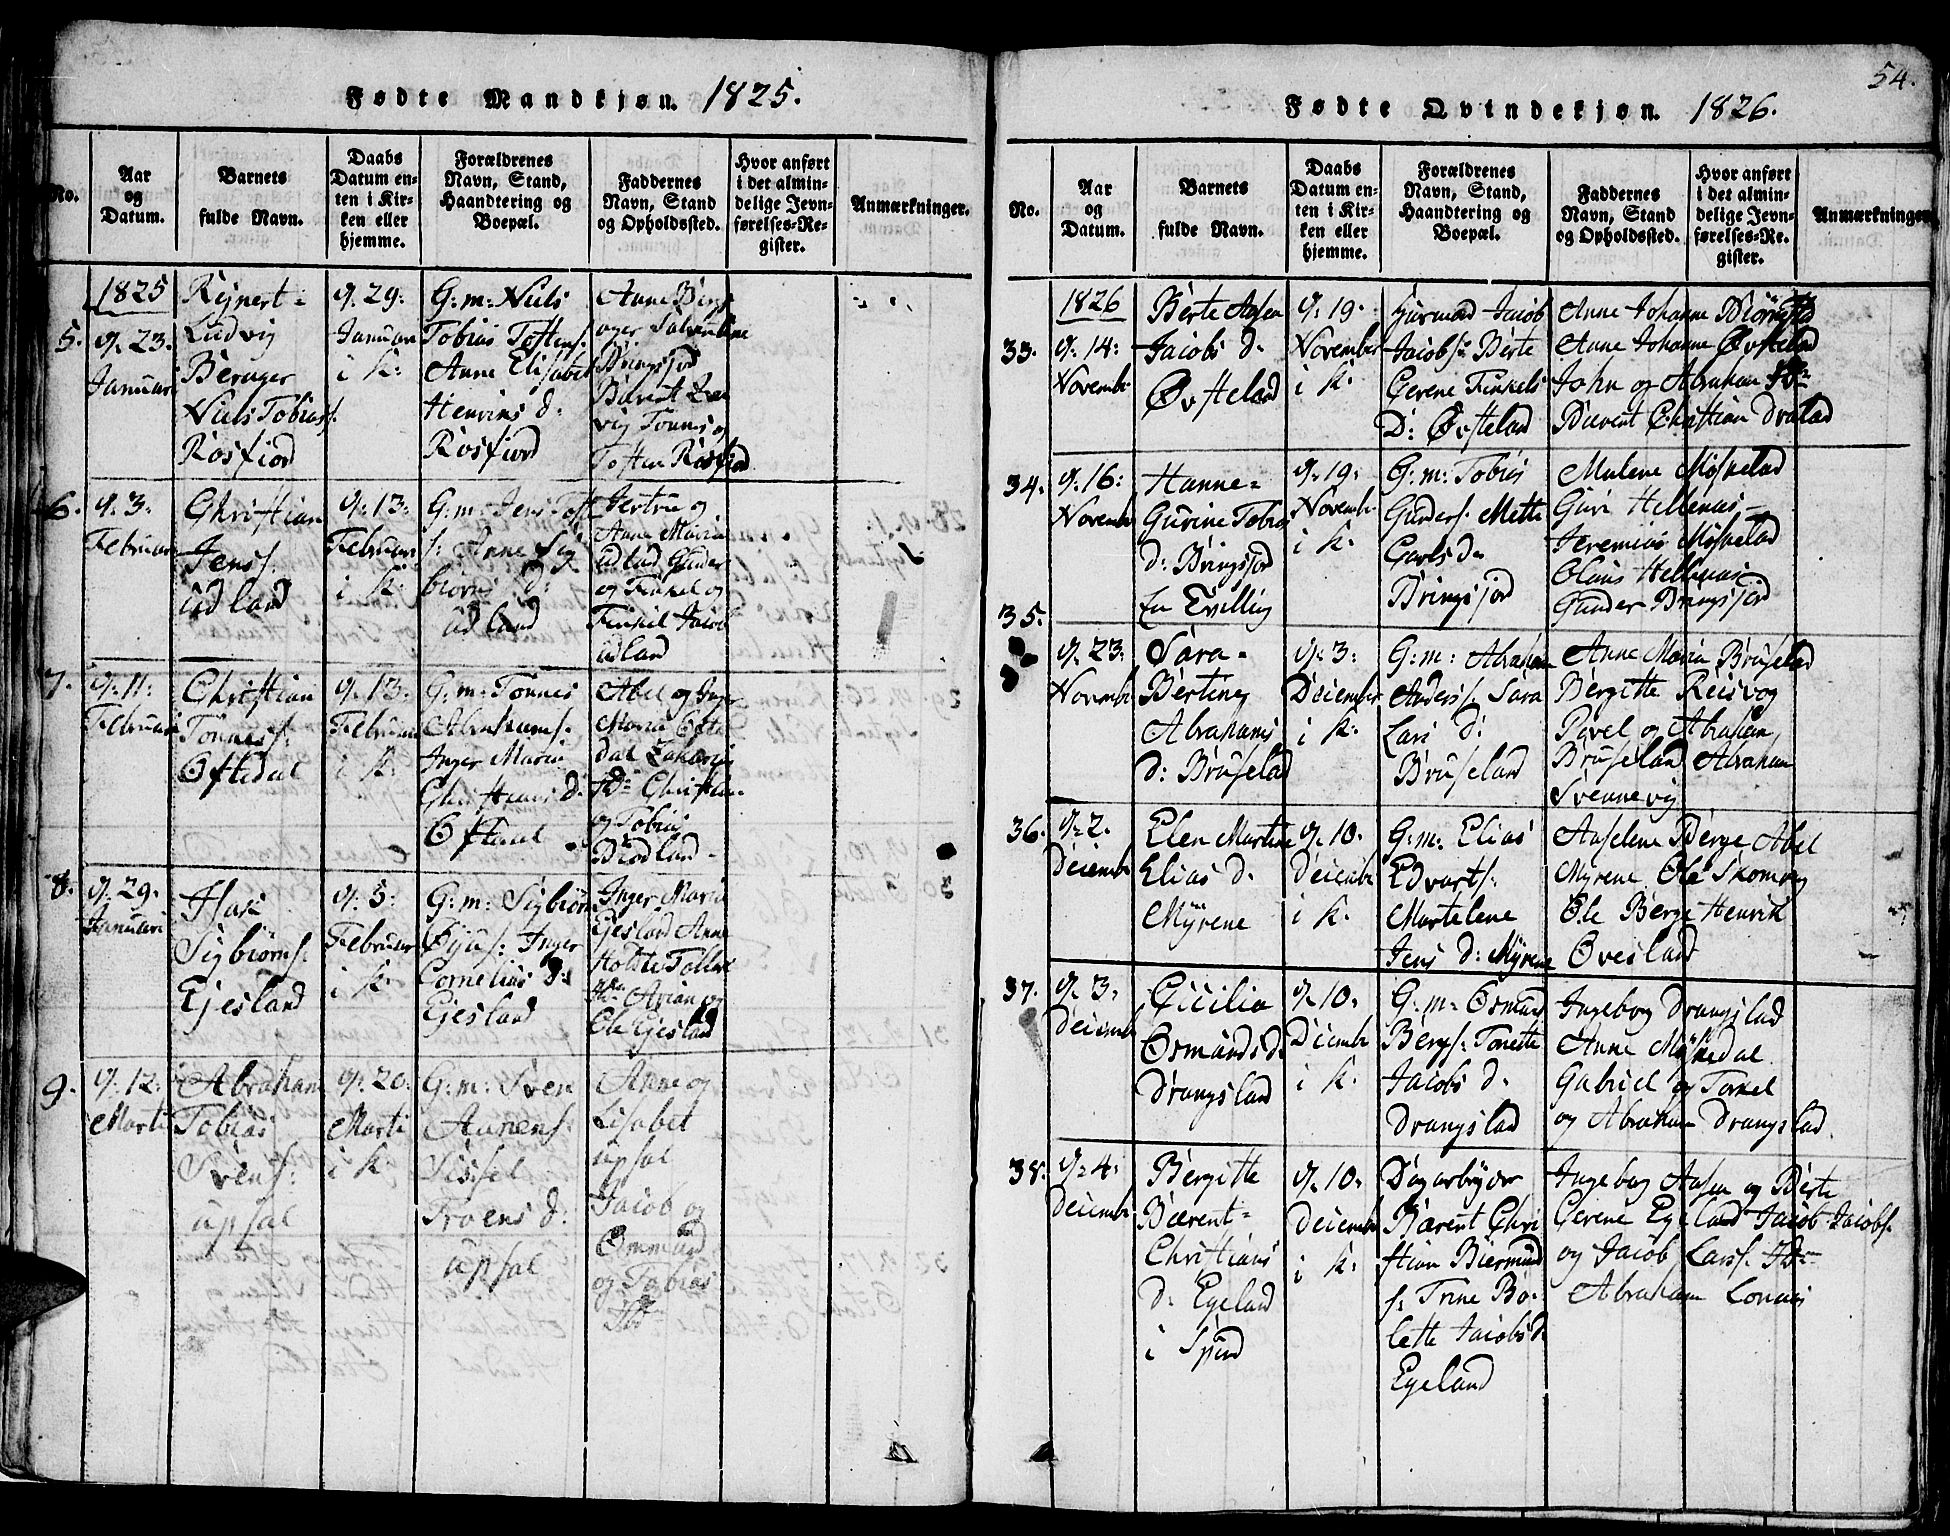 Fødte Mandkjøn. 1825.
No.
Aar
og
Datum.
Barnets
fulde Navn.
Daabs
Datum en-
ten i Kir-
ken eller
hjemme.
Forældrenes
Navn, Stand,
Haandtering og
Boepæl.
Faddernes
Navn, Stand
og Opholdssted.
Hvor anført
i det almin-
delige Jevn-
førelses-Re-
gister.
Anmærkninger.
5.
1825
d. 23.
Januari
Reinert-
Ludvig
Berager
Niels Tobiass.
Rosfiord
d. 29.
Januari
i K.
G: m: Niels
Tobias Toftens.
Anne Elisabet
Henrins d.
Rosfiord
Anne Berge
Bringsjord
Tønnes og
Toften Rosfiord
6.
d. 3.
Februari
Christian
Jenss.
Udland
d. 13.
Februari
i K:
G: m: Jens Toft
s. Anne Sig
biørns d:
Udland
Jertru og
Anne Maria
Udland Gunder
og Finkel og
Finkil Jacob
Udland
7.
d. 11.
Februari
Christian
Tønness.
Oftedal
d. 13.
Februari
i K:
G: m: Tønnes
Abrahams.
Inger Maria
Christians d.
Oftedal
Abel og Inger
Maria Ofte
dal Zakarias
Ibm Christian
og Tobias
Brødland
8.
d. 29.
Januari
Sigbiørns.
Egesland
d. 5.
Februari
i K.
G: m: Sigbiørn
Inger
Cornelius d.
Egesland
Inger Maria
Egesland Anne
Holdte Tollak
Ibm Arian og
Ole Egesland
9.
d. 12.
Marti
Abraham
Tobias
Svens.
Upsal
d. 20.
Marti
i K.
G: m: Sven
Aanens.
Sissel
Troens d.
Upsal
Anne og
Lisabet
Upsal
Jacob og
Ommund
og Tobias
Ibm
54.
Fødte Qvindekjøn. 1826.
No.
Aar
og
Datum.
Barnets
fulde Navn.
Daabs
Datum en-
ten i Kir-
ken eller
hjemme.
Forældrenes
Navn, Stand,
Haandtering og
Boepæl.
Faddernes
Navn, Stand
og Opholdssted.
Hvor anført
i det almin-
delige Jevn-
førelses-Re-
gister.
Anmærkninger
33.
1826
d. 14.
Novemb:
Berte Aasen
Jacobs d.
Øvsteland
d. 19.
November
i K.
Gaarmand Jacob
Jacobs. Berte
Gerene Finkels
D: Øvsteland
Anne Johanne
Anne Johanne Øvsteland
John og Abraham Ibm
Bærent Christian Draland
34.
d. 16.
Novemb
Hanne-
Gurine Tobias
d. Bringsjord
En Tvilling
d. 19.
Novemb
i K.
G: m: Tobias
Gunders. Mette
Carls d.
Bringsjord
Malene Møskelad
Guri Hellenas
Jeremias Møskelad
Olaus Hellenas
Gunder Bringsjord
35.
d. 23.
Novemb
Sara-
Bertine
Abrahams
d. Bruseland
d. 3.
December
i K.
G: m: Abraham
Anderss. Sara
Lars d.
Bruseland
Anne Maria Bruseland
Bergitte Reisvog
Pavel og Abraham
Bruseland Abraham
Svennevig
36.
d. 2.
Decemb
Elen Martine
Elias d.
Myrene
d. 10.
Decemb
i K.
G: m: Elias
Edvarts.
Martelene
Jens d: Myrene
Aaselene Berge Abel
Myrene Ole Skomrag
Ole Berge Henrik
Øvesland
37.
d. 3.
Decemb
Cicilia
Osmunds d.
Drangsland
d. 10.
Decemb
i K.
G: m: Osmund
Bergs. Tonette
Jacobs d.
Drangslad
Ingeborg Drangslad
Anne Møskedal
Gabriel og Torkel
og Abraham Drangslad
38.
d. 4.
Decemb
Bergitte
Bærent-
Christians
d. Egeland
i Spind
d. 10.
Decemb
i K.
Bærent Chri
stian Biermund
s. Trine Bo-
lette Jacobs d.
Egeland
Ingeborg Aasen og Berte
Gerene Egeland Jacob Jacobs.
og Jacob Larss. Ibm
Abraham